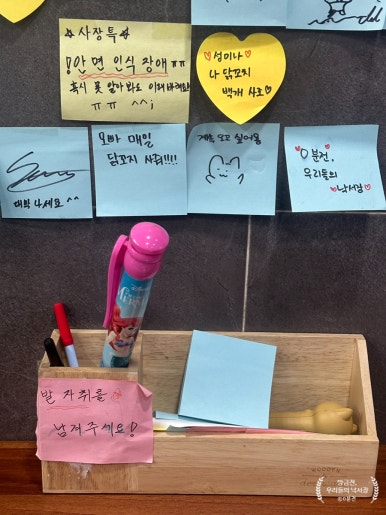 ☆사장특☆
안면 인식 장애 ㅠㅠ
혹시 못 알아봐도 이해바래요!!
ㅠㅠ ^^;
♡성미나♡
나 닭꼬치
백개 사조♡
대박나세요^^
오빠 매일
닭꼬치 사줘!!!!
계속 오고 싶어용
♡0분전,
우리들의
♡낙서장♡
발자취를
남겨주세요!
우리들의 낙서장